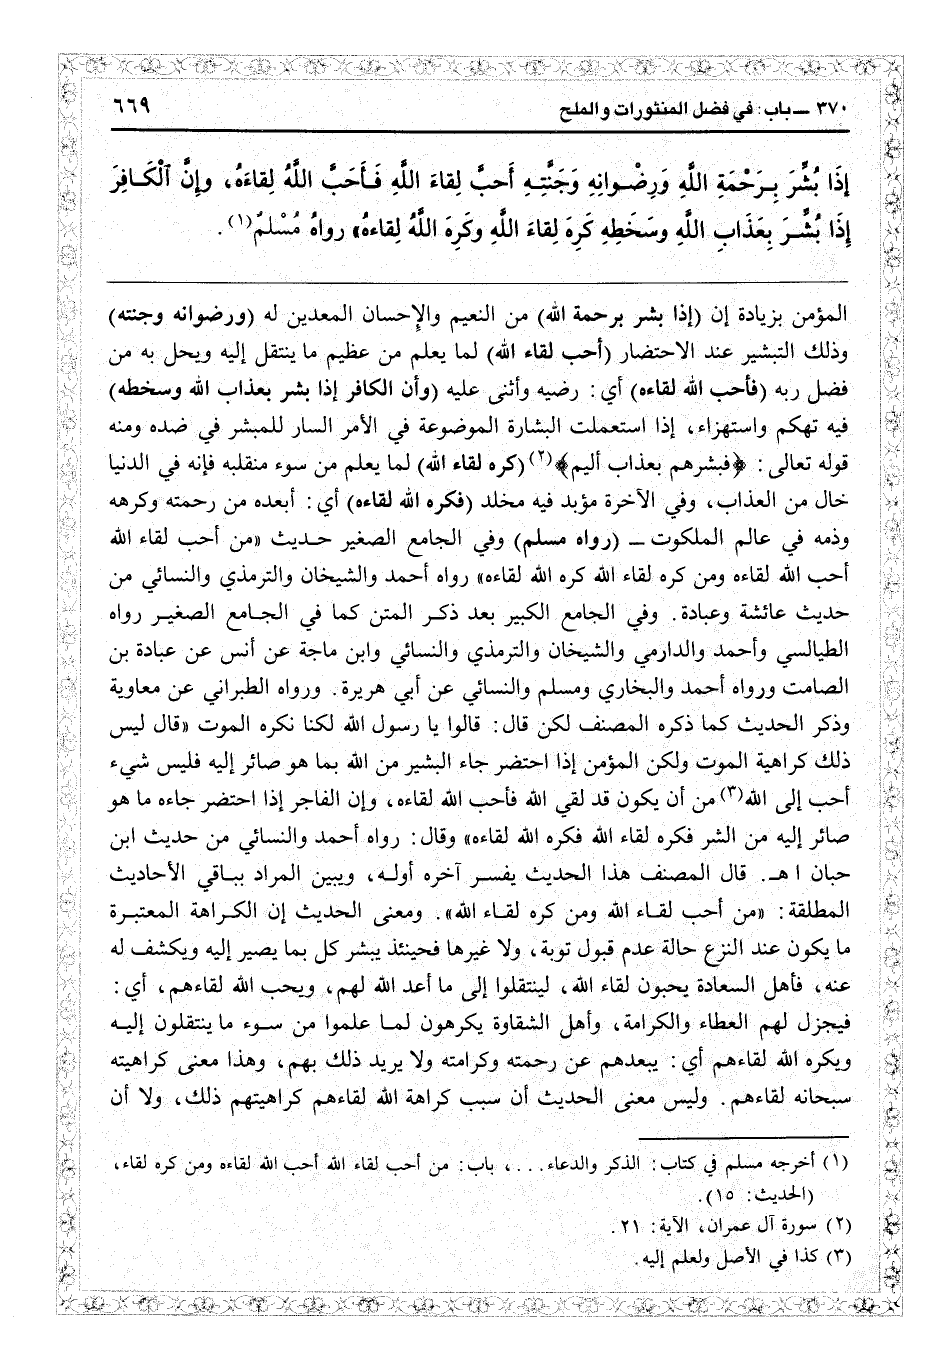 ٣٧٠ ــ باب: في فضل المنثورات والملح
٦٦٩
إِذَا بُشِّرَ بِـرَحْمَةِ اللَّهِ وَرِضْـوانِهِ وَجَنَّتِـهِ أَحبَّ لِقاءَ اللَّهِ فَـأَحَبَّ اللَّهُ لِقاءَهُ، وإِنَّ ٱلْكَـافِرَ
إِذَا بُشِّـرَ بِعَذَابِ اللَّهِ وسَخَطِهِ كَرِهَ لِقاءَ اللَّهِ وكَرِهَ اللَّهُ لِقاءهُ» رواهُ مُسْلمٌ(١).
المؤمن بزيادة إن (إذا بشر برحمة الله) من النعيم والإحسان المعدين له (ورضوانه وجنته)
وذلك التبشير عند الاحتضار (أحب لقاء الله) لما يعلم من عظيم ما ينتقل إليه ويحل به من
فضل ربه (فأحب الله لقاءه) أي: رضيه وأثنى عليه (وأن الكافر إذا بشر بعذاب الله وسخطه)
فيه تهكم واستهزاء، إذا استعملت البشارة الموضوعة في الأمر السار للمبشر في ضده ومنه
قوله تعالى: ﴿فبشرهم بعذاب أليم﴾(٢) (كره لقاء الله) لما يعلم من سوء منقلبه فإنه في الدنيا
خال من العذاب، وفي الآخرة مؤبد فيه مخلد (فكره الله لقاءه) أي: أبعده من رحمته وكرهه
وذمه في عالم الملكوت ــ (رواه مسلم) وفي الجامع الصغير حـديث «من أحب لقاء الله
أحب الله لقاءه ومن كره لقاء الله كره الله لقاءه» رواه أحمد والشيخان والترمذي والنسائي من
حديث عائشة وعبادة. وفي الجامع الكبير بعد ذكـر المتن كما في الجـامع الصغيـر رواه
الطيالسي وأحمد والدارمي والشيخان والترمذي والنسائي وابن ماجة عن أنس عن عبادة بن
الصامت ورواه أحمد والبخاري ومسلم والنسائي عن أبي هريرة. ورواه الطبراني عن معاوية
وذكر الحديث كما ذكره المصنف لكن قال: قالوا يا رسول الله لكنا نكره الموت «قال ليس
ذلك كراهية الموت ولكن المؤمن إذا احتضر جاء البشير من الله بما هو صائر إليه فليس شيء
أحب إلى الله(٣) من أن يكون قد لقي الله فأحب الله لقاءه، وإن الفاجر إذا احتضر جاءه ما هو
صائر إليه من الشر فكره لقاء الله فكره الله لقاءه» وقال: رواه أحمد والنسائي من حديث ابن
حبان ا هـ. قال المصنف هذا الحديث يفسـر آخره أولـه، ويبين المراد ببـاقي الأحاديث
المطلقة: «من أحب لقـاء الله ومن كره لقـاء الله». ومعنى الحديث إن الكـراهة المعتبـرة
ما يكون عند النزع حالة عدم قبول توبة، ولا غيرها فحينئذ يبشر كل بما يصير إليه ويكشف له
عنه، فأهل السعادة يحبون لقاء الله، لينتقلوا إلى ما أعد الله لهم، ويحب الله لقاءهم، أي:
فيجزل لهم العطاء والكرامة، وأهل الشقاوة يكرهون لمـا علموا من سـوء ما ينتقلون إليـه
ويكره الله لقاءهم أي: يبعدهم عن رحمته وكرامته ولا يريد ذلك بهم، وهذا معنى كراهيته
سبحانه لقاءهم. وليس معنى الحديث أن سبب كراهة الله لقاءهم كراهيتهم ذلك، ولا أن
(١) أخرجه مسلم في كتاب: الذكر والدعاء...، باب: من أحب لقاء الله أحب الله لقاءه ومن كره لقاء،
(الحديث: ١٥).
(٢) سورة آل عمران، الآية: ٢١.
(٣) كذا في الأصل ولعلم إليه.